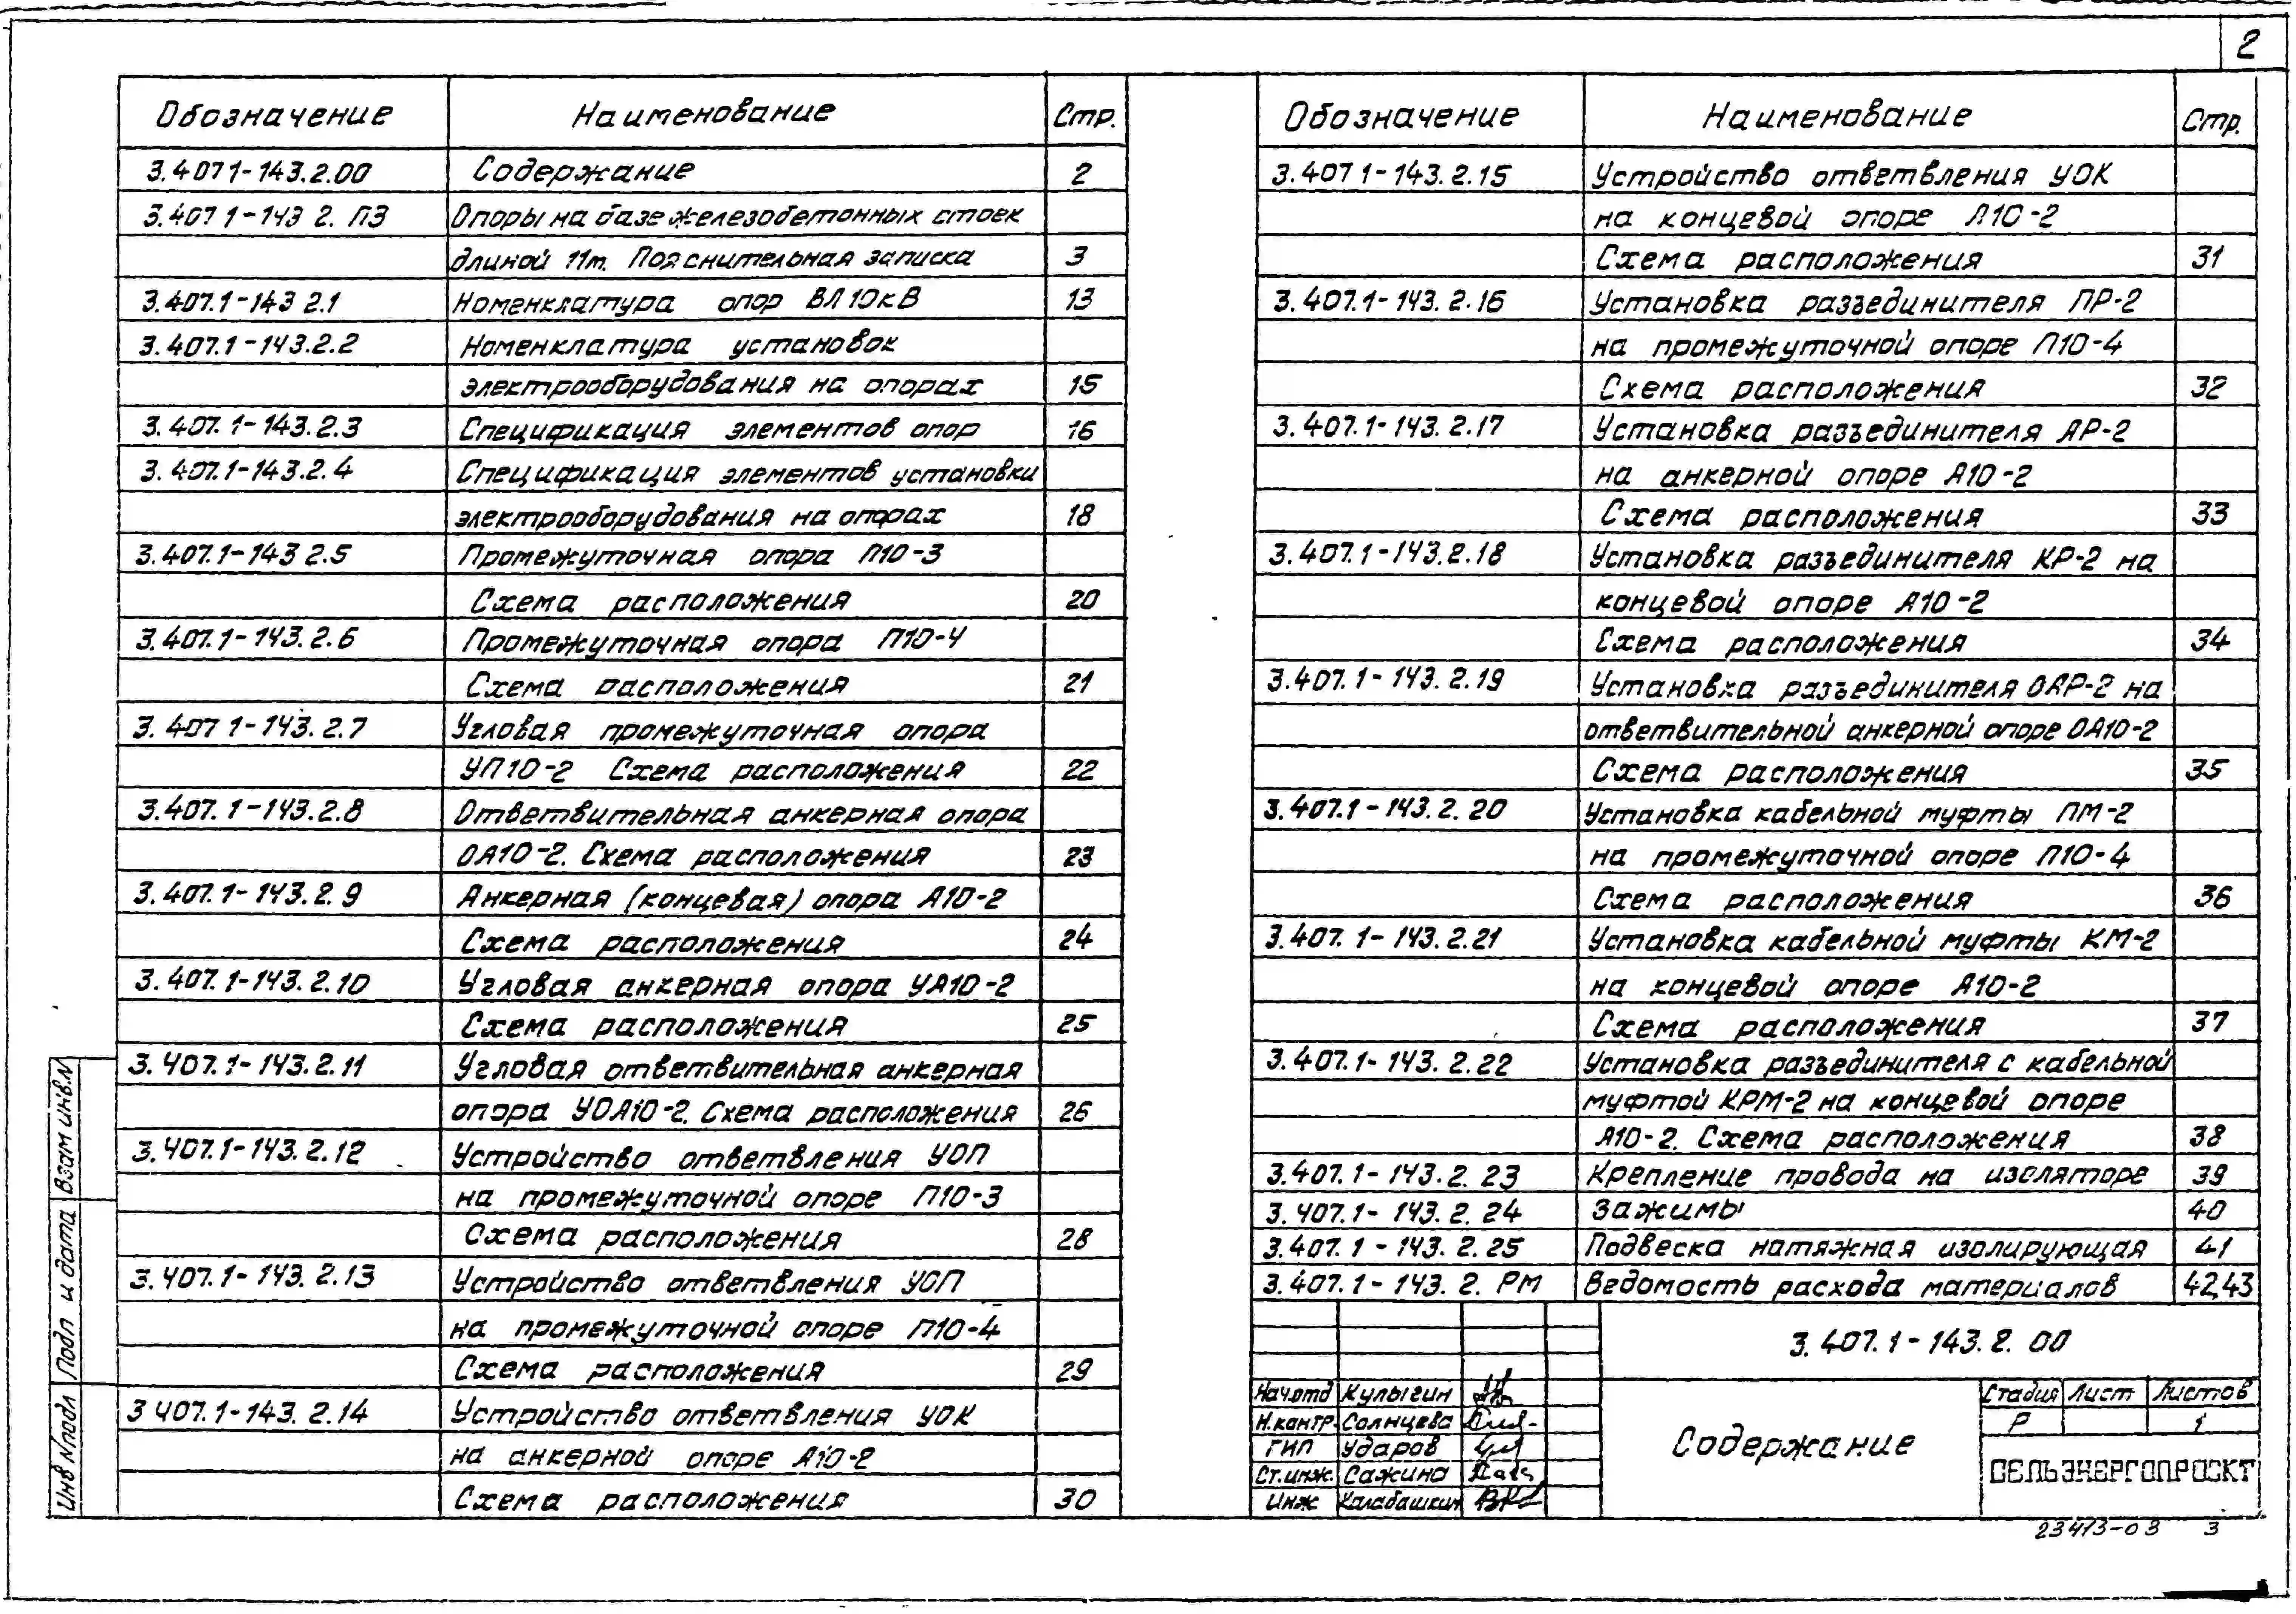 2
Обозначение Наименование Стр.
3.407 1-143.2.00 Содержание 2
3.407 1-143 2. ПЗ Опоры на базе железобетонных стоек
длиной 11м. Пояснительная записка 3
3.407.1-143 2.1 Номенклатура опор ВЛ 10кВ 13
3.407.1-143.2.2 Номенклатура установок
электрооборудования на опорах 15
3.407.1-143.2.3 Спецификация элементов опор 16
3.407.1-143.2.4 Спецификация элементов установки
электрооборудования на опорах 18
3.407.1-143 2.5 Промежуточная опора П10-3
Схема расположения 20
3.407.1-143.2.6 Промежуточная опора П10-4
Схема расположения 21
3.407 1-143.2.7 Угловая промежуточная опора
УП10-2 Схема расположения 22
3.407.1-143.2.8 Ответвительная анкерная опора
ОА10-2. Схема расположения 23
3.407.1-143.2.9 Анкерная (концевая) опора А10-2
Схема расположения 24
3.407.1-143.2.10 Угловая анкерная опора УА10-2
Схема расположения 25
3.407.1-143.2.11 Угловая ответвительная анкерная
опора УОА10-2. Схема расположения 26
3.407.1-143.2.12 Устройство ответвления УОП
на промежуточной опоре П10-3
Схема расположения 28
3.407.1-143.2.13 Устройство ответвления УОП
на промежуточной опоре П10-4
Схема расположения 29
3 407.1-143.2.14 Устройство ответвления УОК
на анкерной опоре А10-2
Схема расположения 30
Обозначение Наименование Стр.
3.407 1-143.2.15 Устройство ответвления УОК
на концевой опоре А10-2
Схема расположения 31
3.407.1-143.2.16 Установка разъединителя ПР-2
на промежуточной опоре П10-4
Схема расположения 32
3.407.1-143.2.17 Установка разъединителя АР-2
на анкерной опоре А10-2
Схема расположения 33
3.407.1-143.2.18 Установка разъединителя КР-2 на
концевой опоре А10-2
Схема расположения 34
3.407.1-143.2.19 Установка разъединителя ОАР-2 на
ответвительной анкерной опоре ОА10-2
Схема расположения 35
3.407.1-143.2.20 Установка кабельной муфты ПМ-2
на промежуточной опоре П10-4
Схема расположения 36
3.407.1-143.2.21 Установка кабельной муфты КМ-2
на концевой опоре А10-2
Схема расположения 37
3.407.1-143.2.22 Установка разъединителя с кабельной
муфтой КРМ-2 на концевой опоре
А10-2. Схема расположения 38
3.407.1-143.2.23 Крепление провода на изоляторе 39
3.407.1-143.2.24 Зажимы 40
3.407.1-143.2.25 Подвеска натяжная изолирующая 41
3.407.1-143.2.РМ Ведомость расхода материалов 42,43
3.407.1-143.2.00
Нач.отд Кулыгин
Н.контр. Солнцева
ГИП Ударов
Ст.инж. Сажина
Инж Калабашкин
Содержание
Стадия Лист Листов
Р 1
СЕЛЬЭНЕРГОПРОЕКТ
23413-03 3
Взам инв.N
Подп и дата
Инв N подл